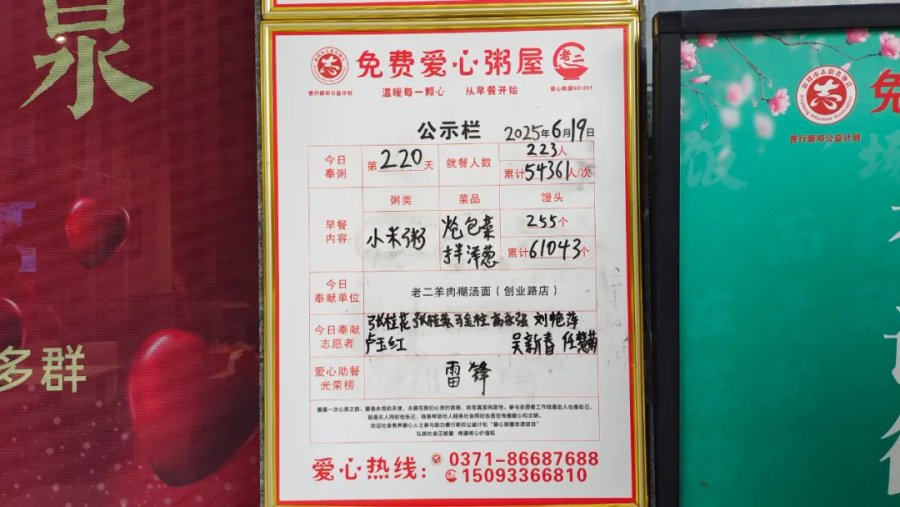 泉
多群
免费爱心粥屋
老二
善行新郑公益计划
温暖每一颗心 从早餐开始
爱心粥屋NO·001
公示栏 2025年6月19日
今日奉粥 第220天 就餐人数 223人
累计54361人/次
粥类 菜品 馒头
早餐内容 小米粥 炝包菜 拌洋葱 255个
累计61043个
今日奉献单位 老二羊肉糊汤面(创业路店)
今日奉献志愿者 张桂花 张桂荣 高永强 刘艳萍
卢玉红 吴新春 任慧菊
爱心助餐光荣榜 雷锋
弘扬社会正能量 传递核心价值观
爱心热线: 0371-86687688
15093366810
善行新郑公益计划
免
饭